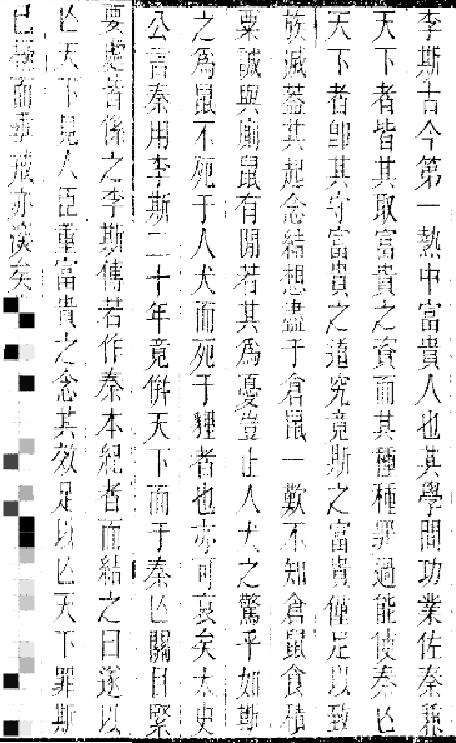 李斯古今第一熱中富貴人也其學問功業佐秦兼
天下者皆其取富貴之資而其種種罪過能使秦亾
天下者即其守富貴之道究竟斯之富貴僅足以致
族滅蓋其起念結想盡于倉鼠一歎不知倉鼠食積
粟誠與廁鼠有間若其為憂豈止人犬之驚乎如斯
之為鼠不死于人犬而死于貍者也亦可哀矣太史
公言秦用李斯二十年竟併天下而于秦亾關目緊
要處皆係之李斯傳若作秦本紀者而結之曰遂以
亾天下見人臣重富貴之念其效足以亾天下罪斯
已極而垂戒亦深矣